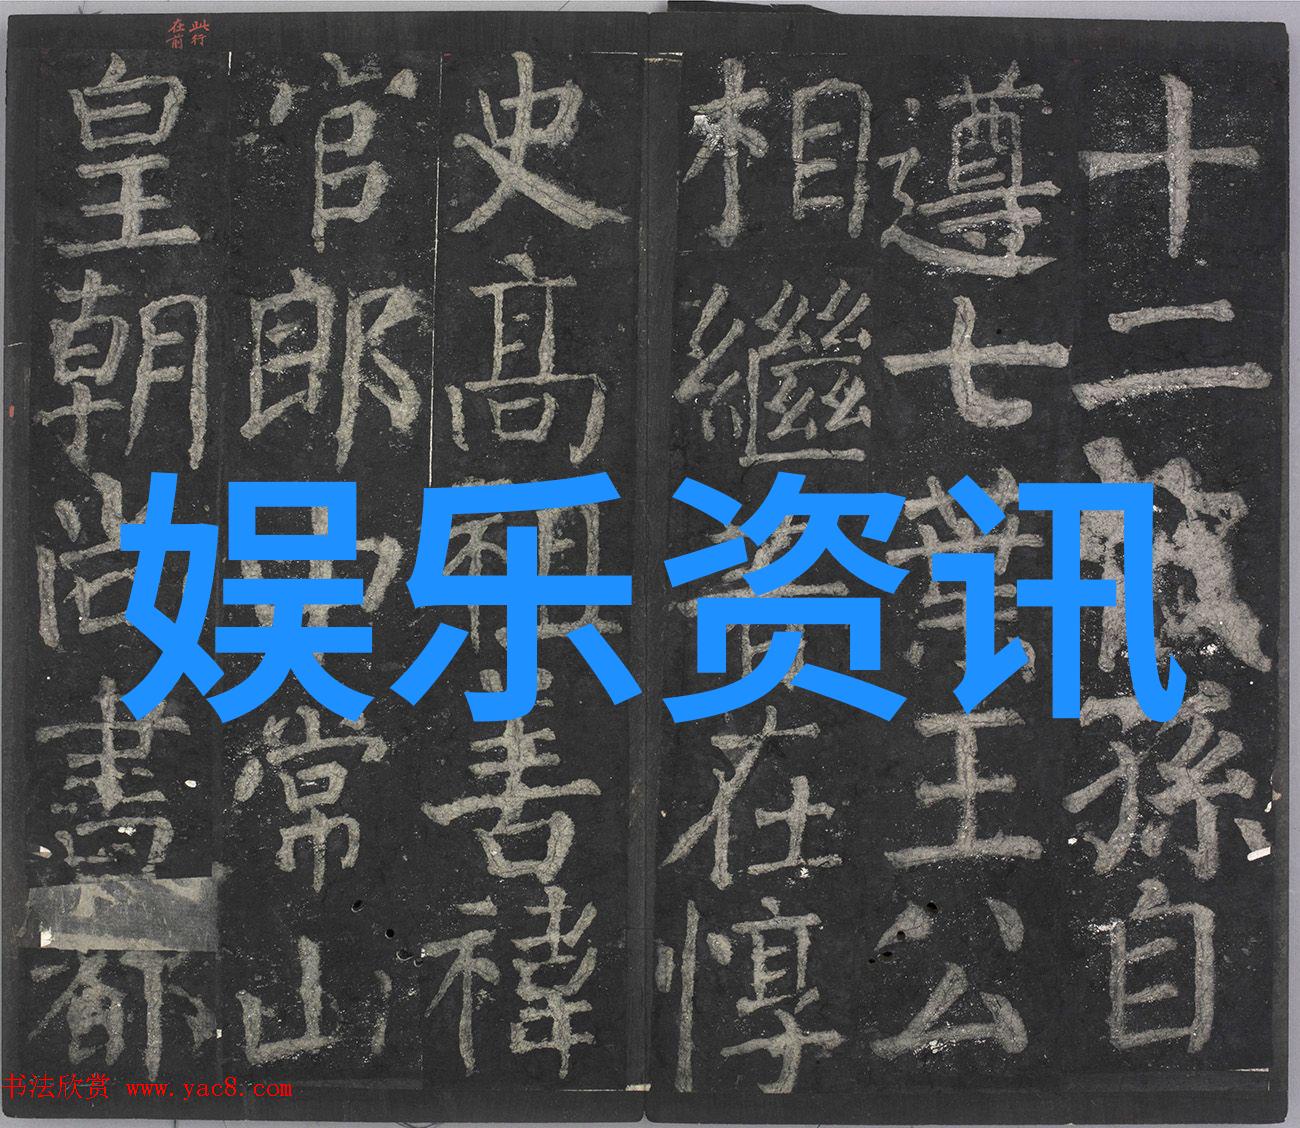 此行
在前
十二孫自
遵七葉王公
相繼著在惇
史高祖善禕
官郎中常山
皇朝尚書都
娱乐资讯
书法欣赏 www.yac8.com